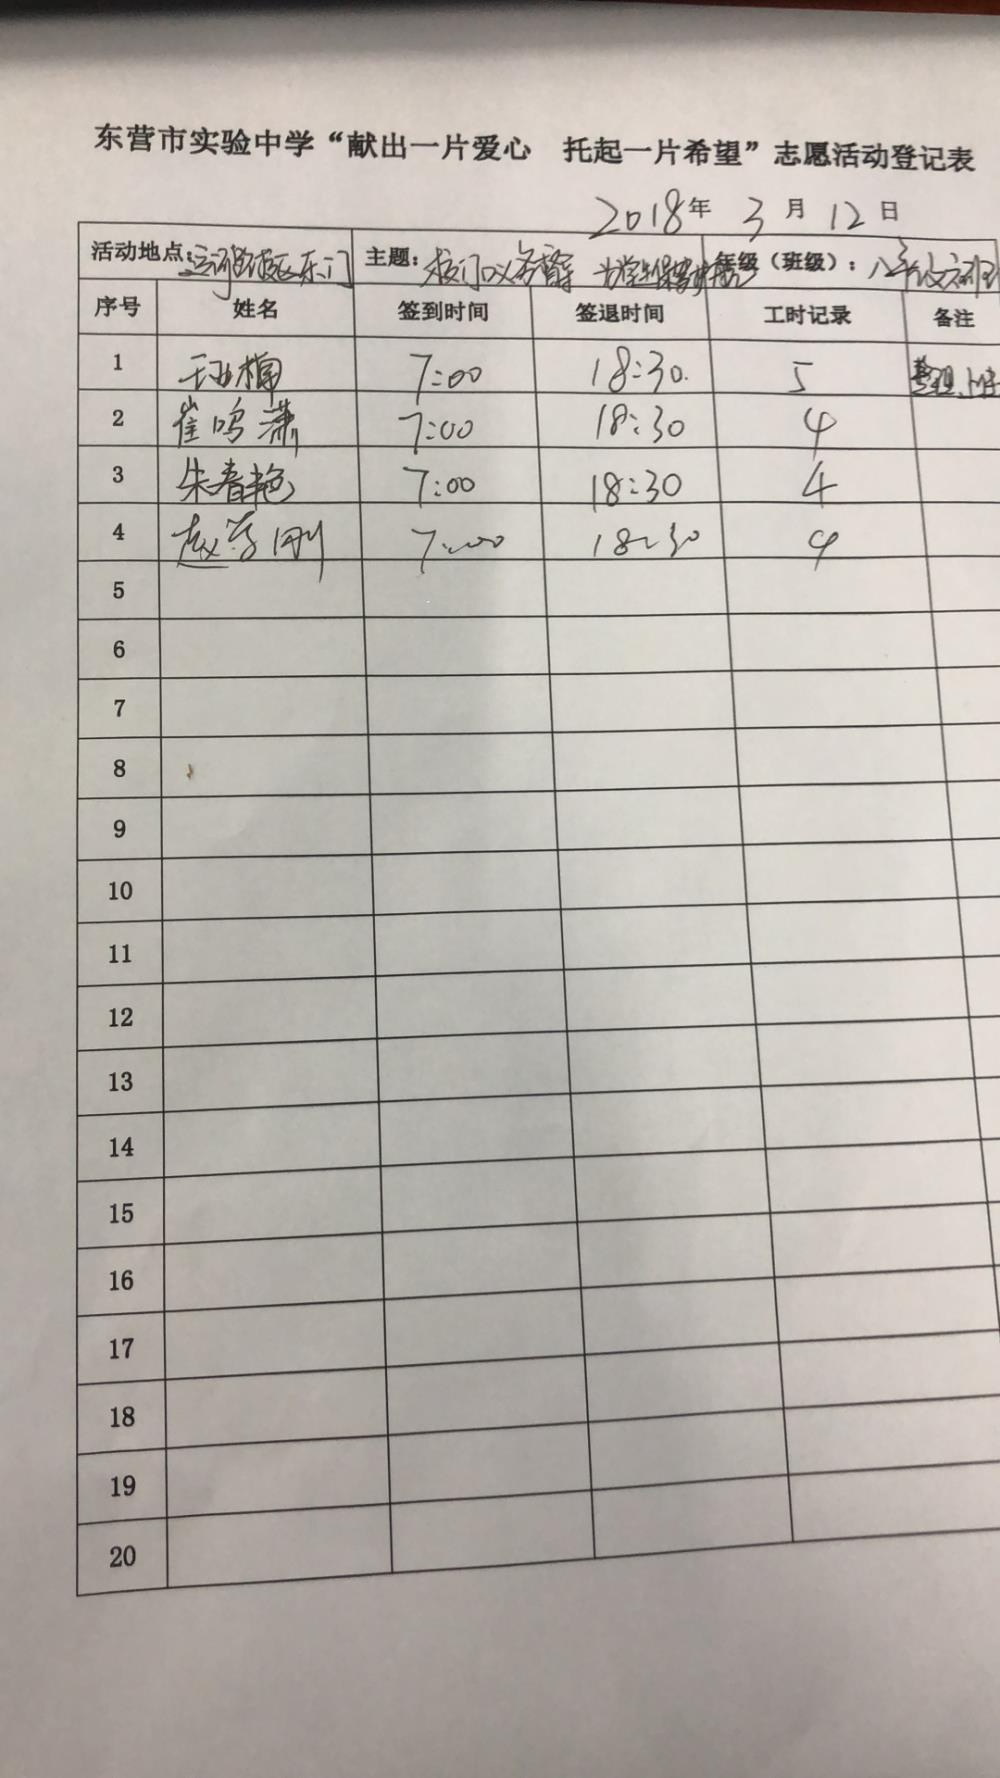 东营市实验中学“献出一片爱心 托起一片希望”志愿活动登记表
2018年 3月 12日
活动地点: 东门 主题: 校门口义务 为学生保 年级（班级）: 八年
序号 姓名 签到时间 签退时间 工时记录 备注
1 楠 7:00 18:30. 5
2 崔鸣潇 7:00 18:30 4
3 朱春艳 7:00 18:30 4
4 赵 刚 7:00 18:30 4
5
6
7
8
9
10
11
12
13
14
15
16
17
18
19
20